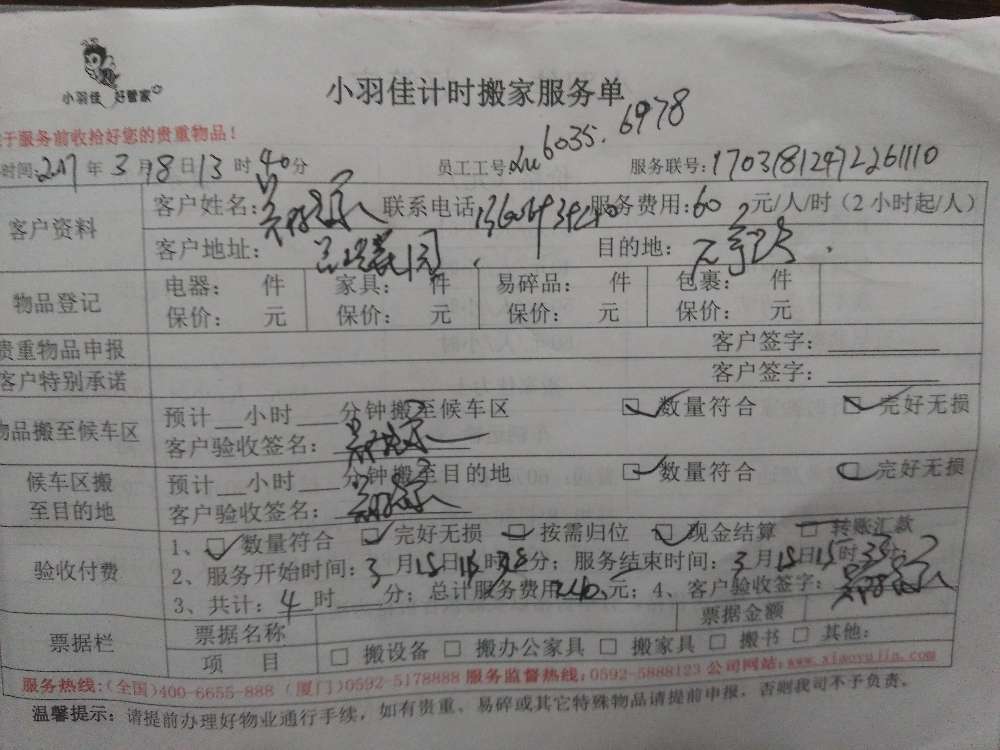 小羽佳 好管家
小羽佳计时搬家服务单
于服务前收拾好您的贵重物品！
时间:2017年3月8日13时40分 员工工号 6035.6978 服务联号:17031812472261110
客户资料 客户姓名: 联系电话 服务费用:60元/人/时（2小时起/人）
客户地址: 目的地:
物品登记 电器： 件 家具： 件 易碎品： 件 包裹： 件
保价： 元 保价： 元 保价： 元 保价： 元
贵重物品申报 客户签字：
客户特别承诺 客户签字：
物品搬至候车区 预计__小时___分钟搬至候车区 数量符合 完好无损
客户验收签名：
候车区搬至目的地 预计__小时___分钟搬至目的地 数量符合 完好无损
客户验收签名：
验收付费 1、数量符合 完好无损 按需归位 现金结算 转账汇款
2、服务开始时间：3月 日 时 分；服务结束时间：3月 日15时 分
3、共计：4时___分；总计服务费用240元；4、客户验收签字：
票据栏 票据名称 票据金额
项 目 搬设备 搬办公家具 搬家具 搬书 其他：
服务热线:(全国)400-6655-888 (厦门)0592-5178888 服务监督热线:0592-5888123 公司网站:www.xiaoyujia.com
温馨提示：请提前办理好物业通行手续，如有贵重、易碎或其它特殊物品请提前申报，否则我司不予负责。